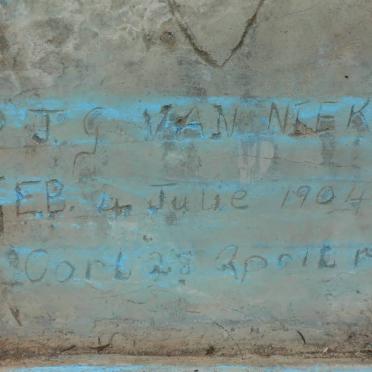 J G VAN NIEK
GEB. 4 Julie 1904
Oorl 28 April